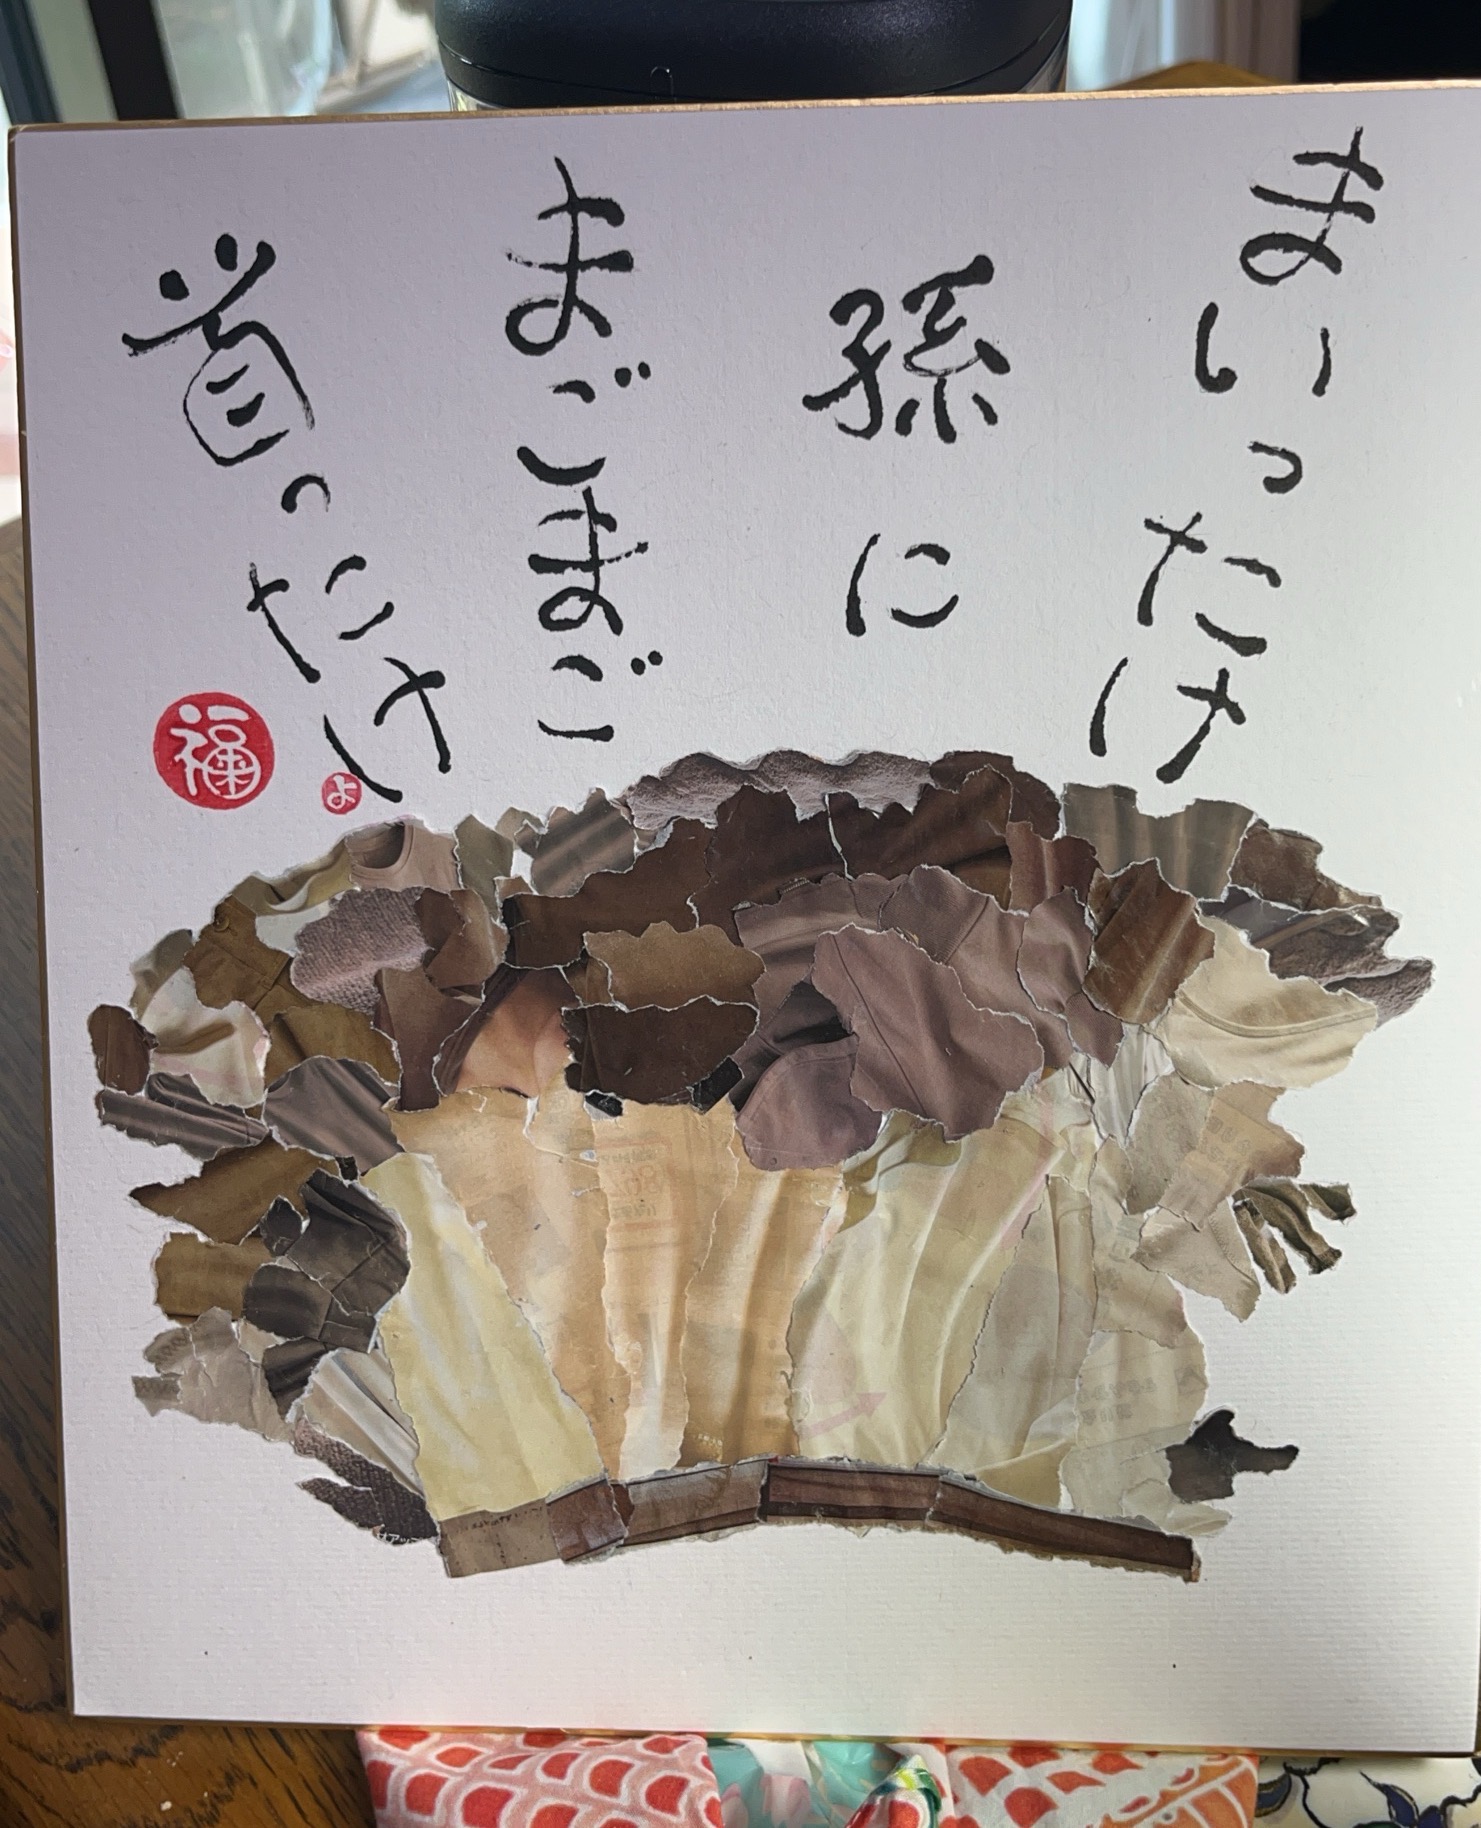 まいったけ
孫に
まごまご
首ったけ
福
よ